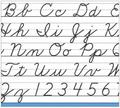 Bb Cc Dd E
Hh Ii Jj K
Nn Oo Pp
Tt Uu Vv W
Zz 1 2 3 4 5 6